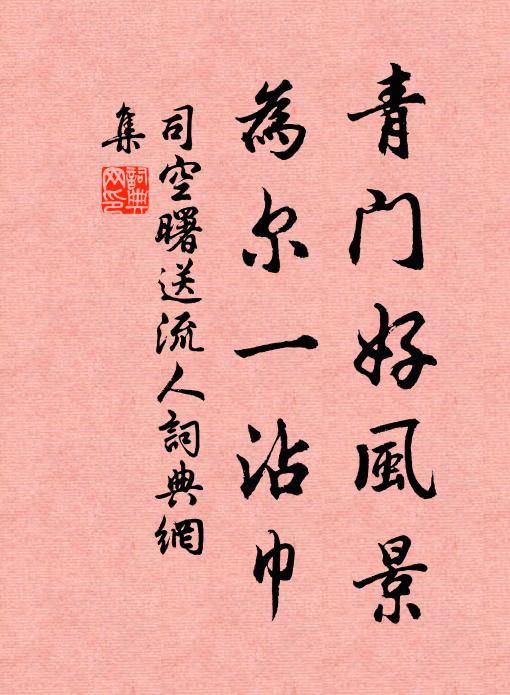 青门好風景
為尔一沾巾
司空曙送流人詞典網
集
詞典
网印